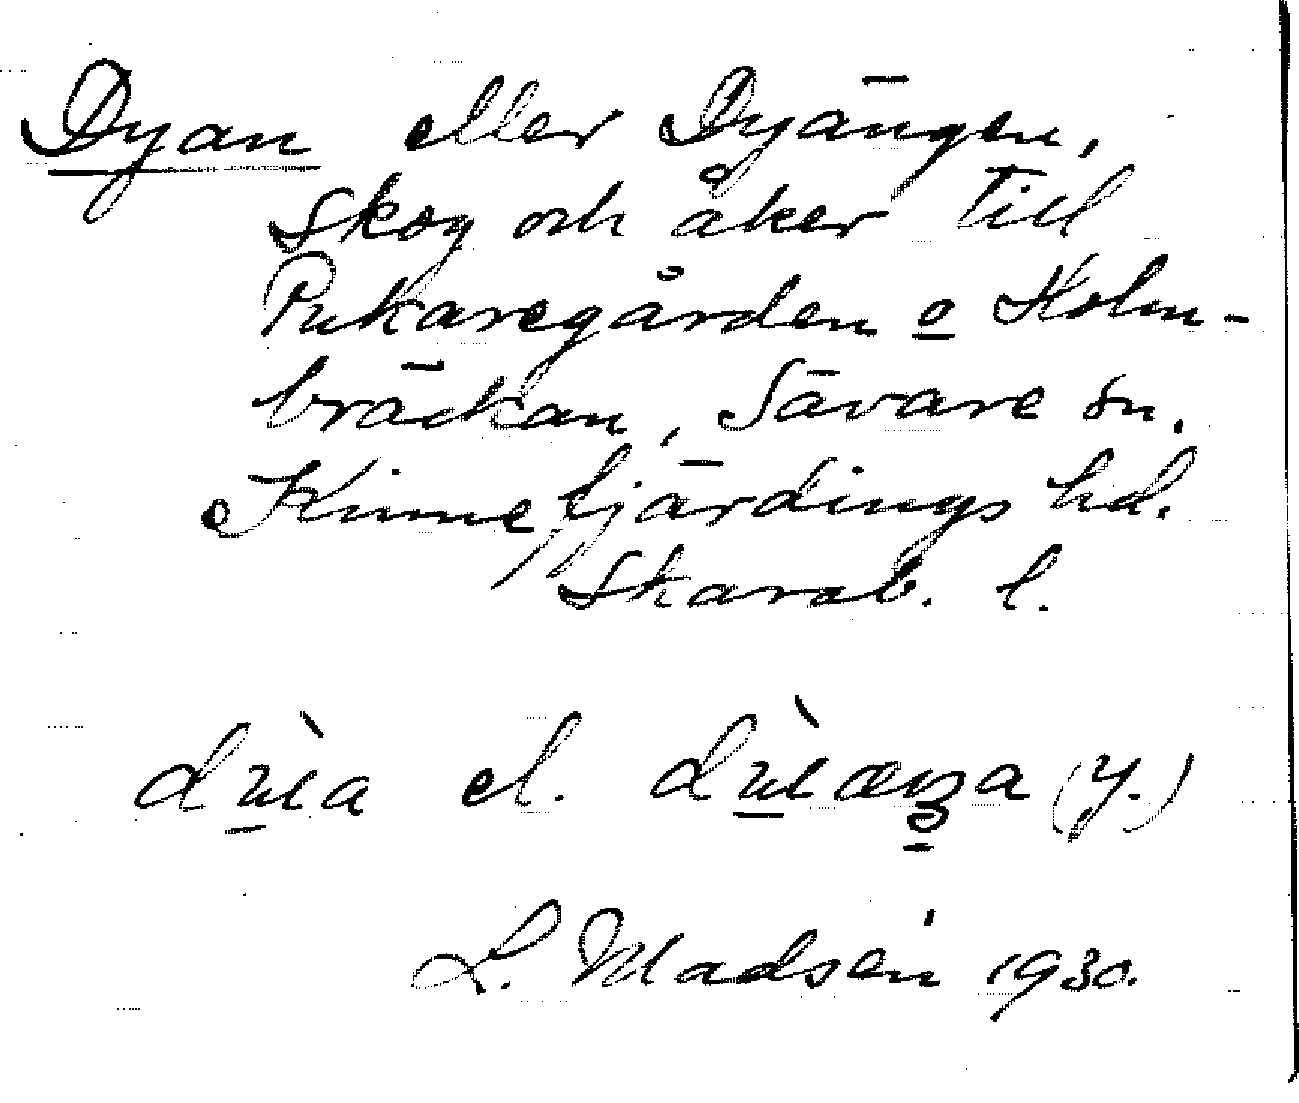 Dyan eller Dyängen,
Skog och åker till
Pukaregården o Holm-
bräckan, Sävare sn.
Kinnefjärdings hd.
Skarab. l.
el. (y.)
L. Madsén 1930.